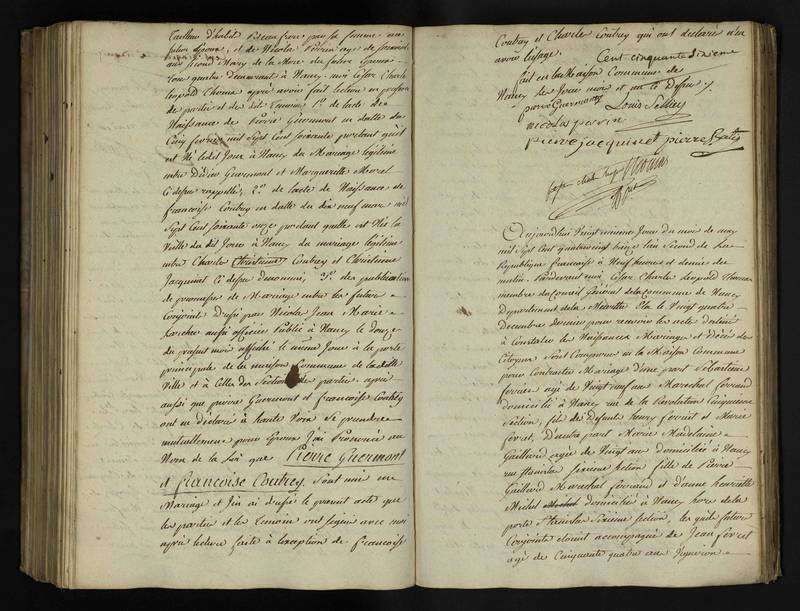 Tailleur d'habit Beau frere par sa femme au
futur Epoux, et de Nicolas Perrin agé de soixante
de parties et des dits Temoins 1° de l'acte de
Naissance de Pierre Guermont en datte du
Cinq fevrier mil Sept Cent Soixante portant qu'il
est Né ledit Jour à Nancy du Mariage légitime
entre Didier Guermont et Marguerite Morel
Ci dessus rappellés, 2° de l'acte de Naissance de
françoise Coutrey en datte du dix neuf mars mil
Sept Cent soixante onze portant qu'elle est Née la
Ville dudit Jour à Nancy du mariage légitime
entre Charles Christienne Coutrey et Christienne
Jacquinet Ci dessus denommés, 3° des publications
de promesse de Mariage entre les futurs
Conjoints Dressé par Nicolas Jean Marie
aussi officier Public à Nancy le douze
du présent mois affiché le même Jour à la porte
principale de la maison Commune de laditte
Ville et à Celle des Sections de parties. après
aussi que pierre Guermont et françoise Coutrey
ont eu déclaré à haute Voix Se prendre
mutuellement pour Epoux J'ai Prononcé au
Nom de la Loi que Pierre Guermont
et françoise Coutrey, Sont unis en
Mariage et J'en ai dressé le présent acte que
les parties et les temoins ont signé avec moi
après lecture faite à l'exception de françoise
Coutrey et Charles Coutrey qui ont déclaré n'en
avoir l'usage.
Cent cinquante dixieme
fait en la Maison Commune de
Nancy les Jour mois et an ci dessus
pierre Guermont Louis
nicolas parin
pierre jacquinet pierre
Thomas
Aujourd'huy Vingt unieme Jour du mois de may
mil Sept Cent quatrevingt treize l'an Second de la
Republique françoise à Neuf heures et demie du
matin. Pardevant moi César Charles Leopold Thomas
membre du Conseil Général de la commune de Nancy
Departement de la Meurthe Elu le Vingt quatre
Decembre dernier pour recevoir les actes destinés
à Constater les Naissances, Mariages et Décès des
Citoyens Sont Comparus en la Maison Commune
pour Contracter Mariage d'une part Sebastien
ferriet agé de Vingt neuf ans Marechal ferrand
domicilié à Nancy rue de la Revolution Cinquieme
Section, fils de Defunts henry ferriet et Marie
D'autre part Marie Madelaine
Gaillard agée de Vingt ans domiciliée à Nancy
rue Stanislas Sixieme Section fille de Pierre
Gaillard Marechal ferrand et d'anne henriette
Michel domiciliés à Nancy hors de la
porte Stanislas Sixieme Section, lesquels futurs
Conjoints étoient accompagnés de Jean ferriet
agé de Cinquante quatre ans Vigneron